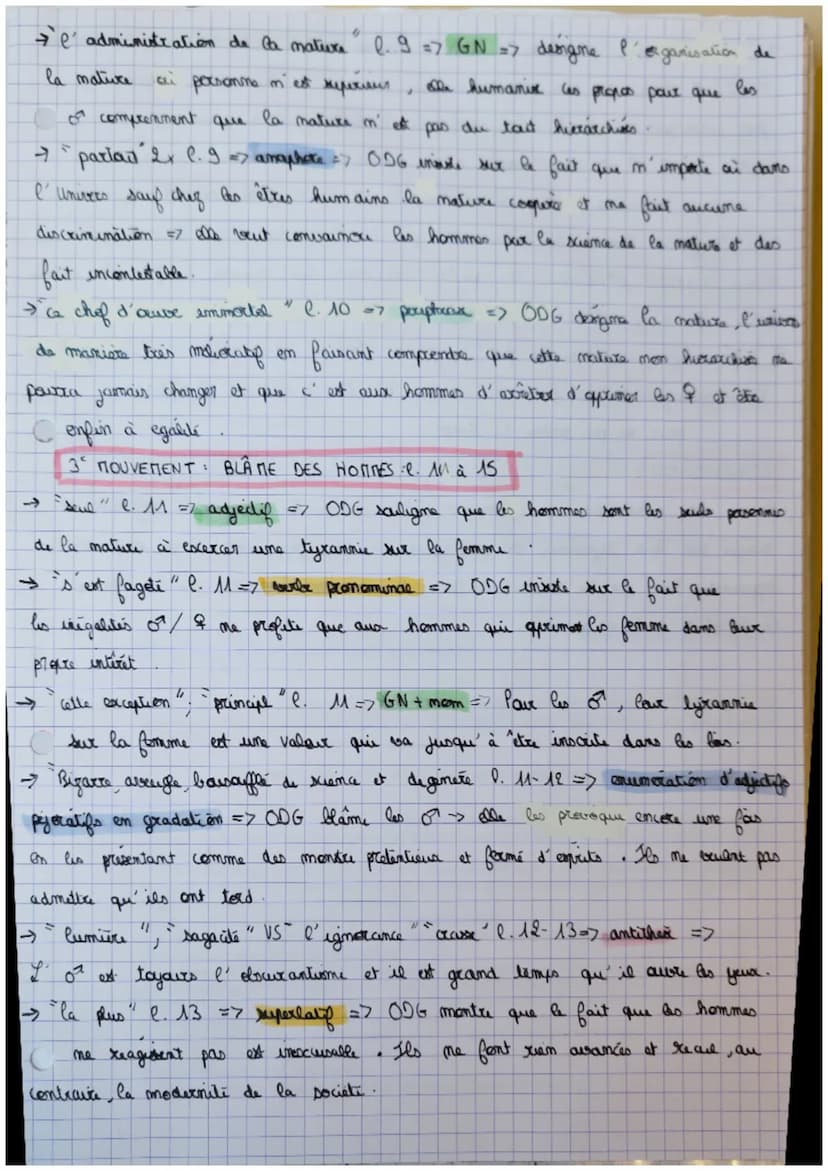 → "l'administration de la nature" l. 9 => GN => désigne l'organisation de
la nature où personne n'est supérieur, elle humanise ces propos pour que les
♂ comprennent que la nature n'est pas du tout hiérarchisés.
→ "partout" 2x l. 9 => anaphore => ODG insiste sur le fait que n'importe où dans
l'Univers sauf chez les êtres humains la nature coopère et ne fait aucune
discrimination => elle veut convaincre les hommes par la science de la nature et des
fait incontestable.
→ "ce chef d'œuvre immortel" l. 10 => periphrase => ODG désigne la nature, l'univers
de manière très mélioratif en faisant comprendre que cette nature non hierarchisée ne
pourra jamais changer et que c'est aux hommes d'arrêter d'opprimer les ♀ et être
enfin à egalité.
3e MOUVEMENT : BLÂME DES HOMMES : l. 11 à 15
→ "seul" l. 11 => adjectif => ODG souligne que les hommes sont les seuls personnes
de la nature à excercer une tyrannie sur la femme.
→ "s'est fagoté" l. 11 => verbe pronominal => ODG insiste sur le fait que
les inégalités ♂/♀ ne profite que aux hommes qui opriment les femme dans leur
propre intérêt.
→ "cette exception" ; "principe" l. 11 => GN + nom => Pour les ♂, leur tyrannie
sur la femme est une valeur qui va jusqu'à être inscrite dans les lois.
→ "Bizarre, aveugle, boursoufflé de science et degénéré l. 11-12 => enumération d'adjectifs
péjoratifs en gradation => ODG blâme les ♂ → elle les provoque encore une fois
en les présentant comme des monstre prétentieux et fermé d'esprits. Ils ne veulent pas
admettre qu'ils ont tord.
→ "lumière", "sagacité" VS "l'ignorance" "crasse" l. 12-13 => antithèse =>
L'♂ est toujours l'obscurantisme et il est grand temps qu'il ouvre les yeux.
→ "la plus" l. 13 => superlatif => ODG montre que le fait que les hommes
ne réagissent pas est inexcusable. Ils ne font rien avancés et recule, au
contraire, la modernité de la société.